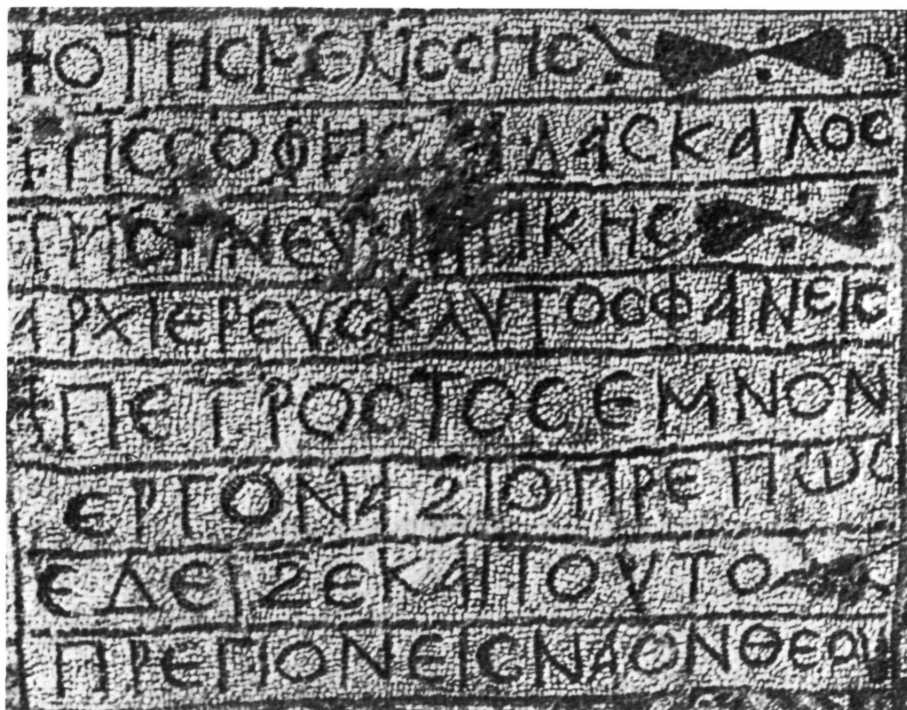 +ΟΤΗCΜΕΛΙCCΗC
ΤΗCCΟΦΗCΔΙΔΑCΚΑΛΟC
ΤΗCΠΝΕΥΜΑΤΙΚΗC
ΑΡΧΙΕΡΕΥCΚΑΥΤΟCΦΑΝΕΙC
+ΠΕΤΡΟCΤΟCΕΜΝΟΝ
ΕΡΓΟΝΑΞΙΟΠΡΕΠΩC
ΕΔΕΙΞΕΚΑΙΤΟΥΤΟ
ΠΡΕΠΟΝΕΙCΝΑΟΝΘΕΟΥ